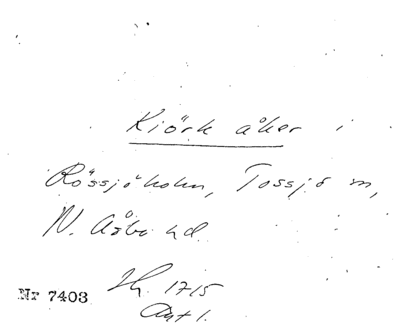 Kiörk åker i
Rössjöholm, Tossjö m,
N. Åsbo hd.
Jh. 1715
Akt 1.
Nr 7403